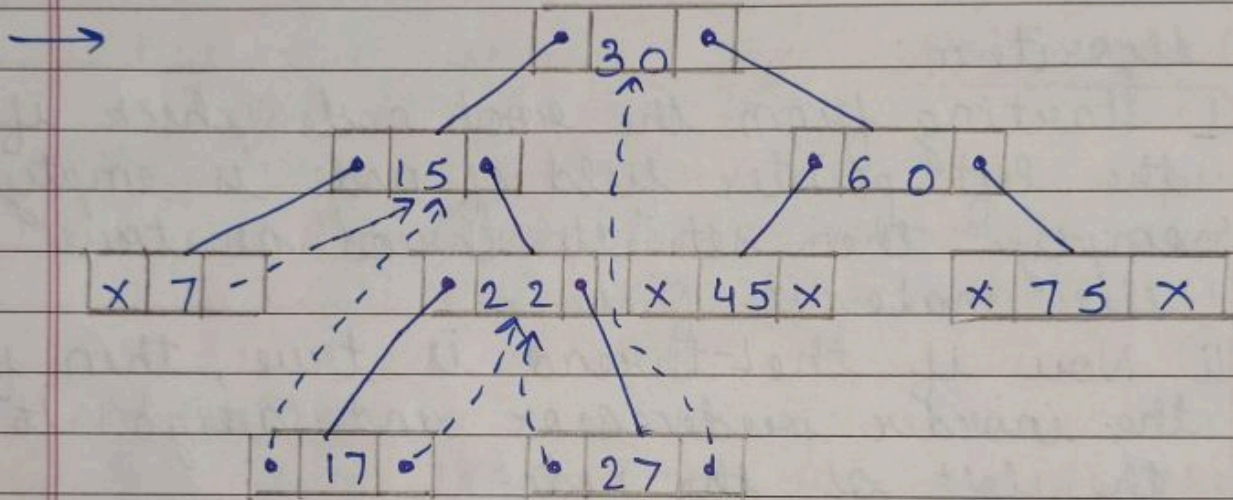 30
15 60
x 7 - 22 x 45 x x 75 x
17 27